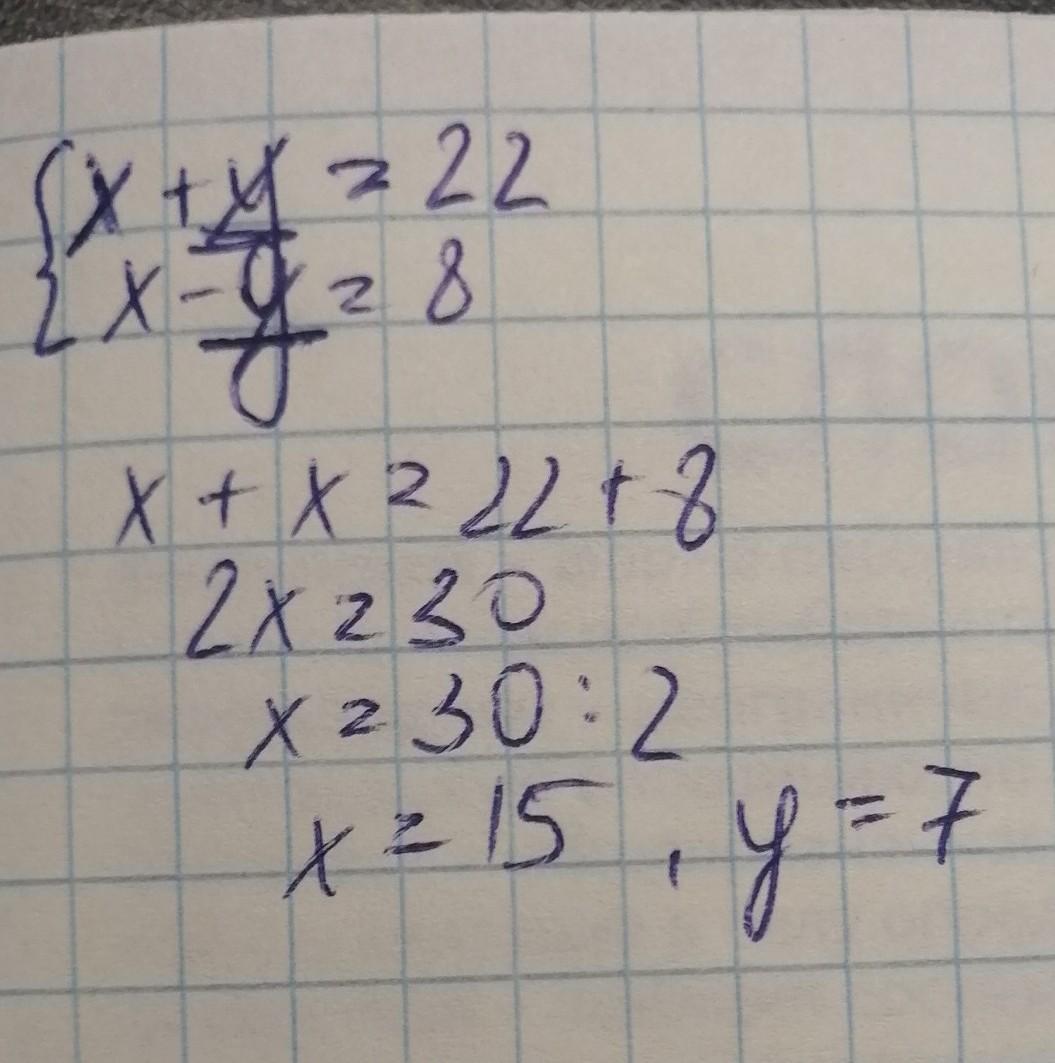 x + y = 22
x - y = 8
x + x = 22 + 8
2x = 30
x = 30 : 2
x = 15 , y = 7